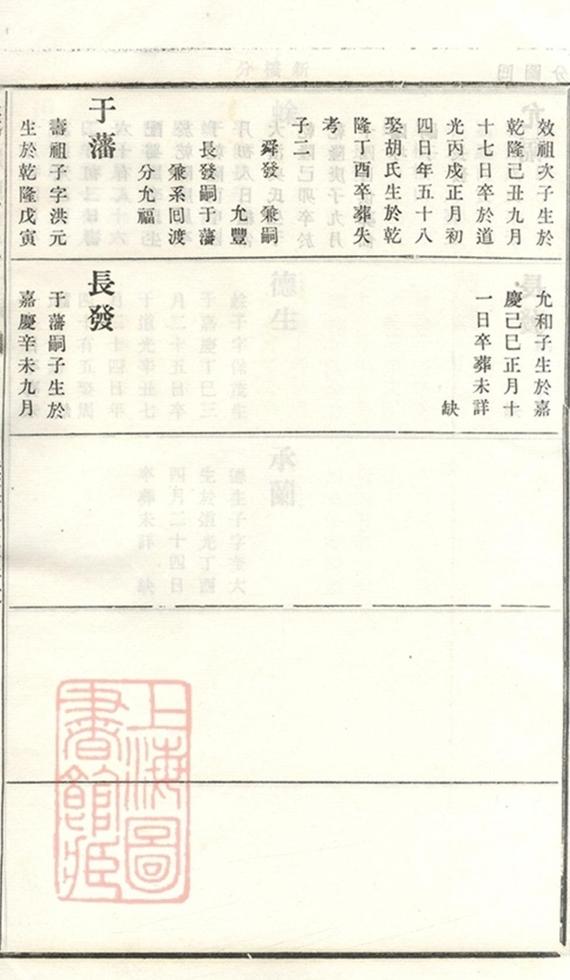 效祖次子生於
乾隆己丑九月
十七日卒於道
光丙戌正月初
四日年五十八
娶胡氏生於乾
隆丁酉卒葬失
考
子二
舜發 兼嗣
允豐
長發嗣于藩
兼系回渡
分允福
于藩
壽祖子字洪元
生於乾隆戊寅
允和子生於嘉
慶己巳正月十
一日卒葬未詳
缺
長發
于藩嗣子生於
嘉慶辛未九月
上海圖
書館藏